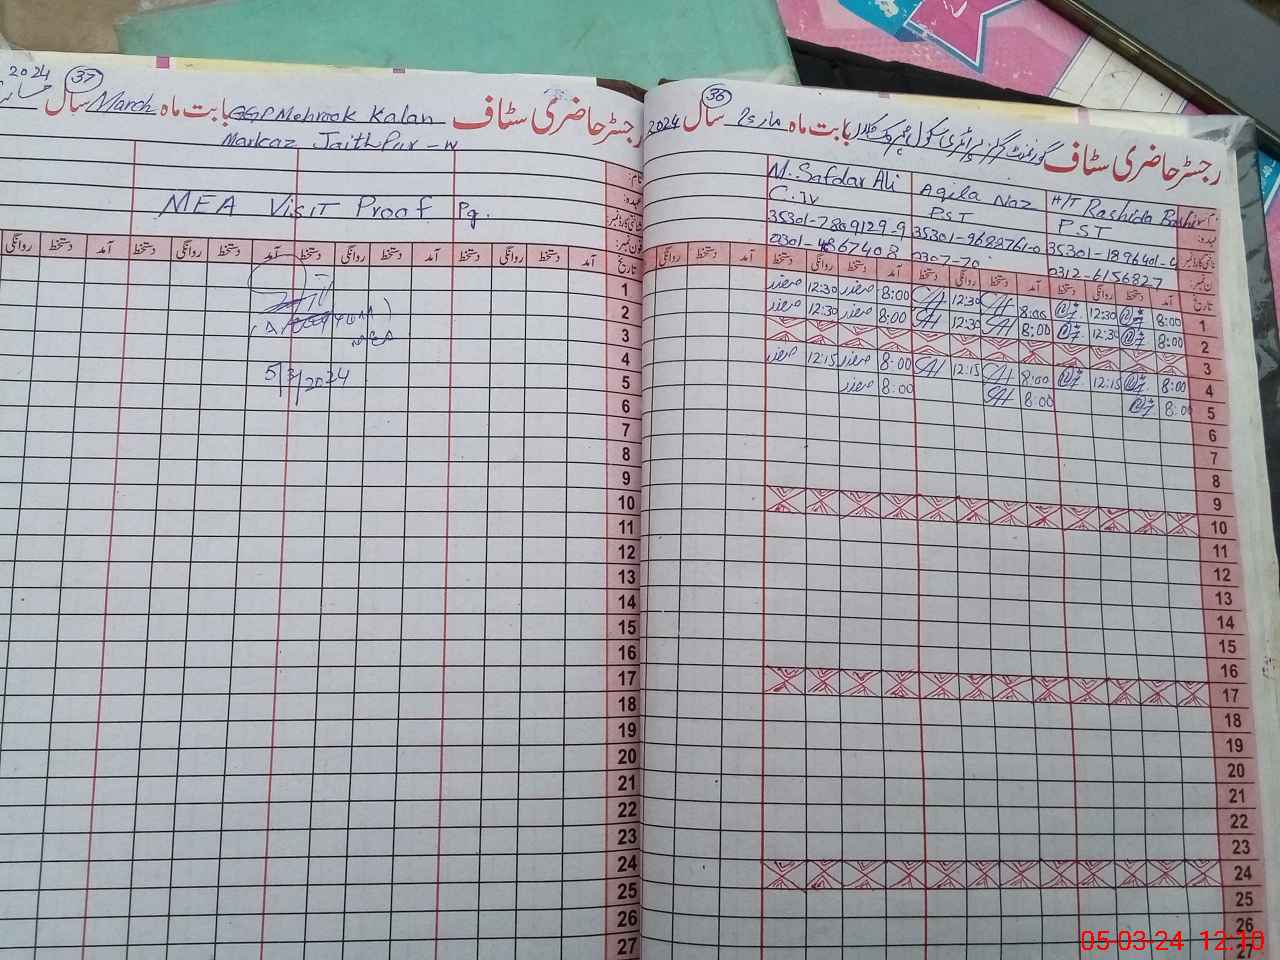 2024 (37)
سال March بابت ماہ GGP Mehrook Kalan رجسٹر حاضری سٹاف
Markaz Jaith Pur - W
نام:
عہدہ:
MEA Visit Proof Pg.
فون نمبر:
روانگی دستخط آمد دستخط روانگی دستخط آمد دستخط روانگی دستخط آمد دستخط روانگی دستخط آمد تاریخ
5/3/2024
1
2
3
4
5
6
7
8
9
10
11
12
13
14
15
16
17
18
19
20
21
22
23
24
25
26
27
(36)
رجسٹر حاضری سٹاف گورنمنٹ گرلز پرائمری سکول بابت ماہ مارچ سال 2024
M. Safdar Ali Aqila Naz H/T Rashida Bashir
C. IV PST PST
35301-7869129-9 35301-9682761-0 35301-1896401-4
0301-4867408 0307-70 0312-6156827
روانگی دستخط آمد دستخط روانگی دستخط آمد دستخط روانگی دستخط آمد دستخط روانگی دستخط آمد تاریخ
صفدر 12:30 صفدر 8:00 12:30 8:00 12:30 8:00 1
صفدر 12:30 صفدر 8:00 12:30 8:00 12:30 8:00 2
3
صفدر 12:15 صفدر 8:00 12:15 8:00 12:15 8:00 4
صفدر 8:00 8:00 8:00 5
6
7
8
9
10
11
12
13
14
15
16
17
18
19
20
21
22
23
24
25
26
27
05-03-24 12:10